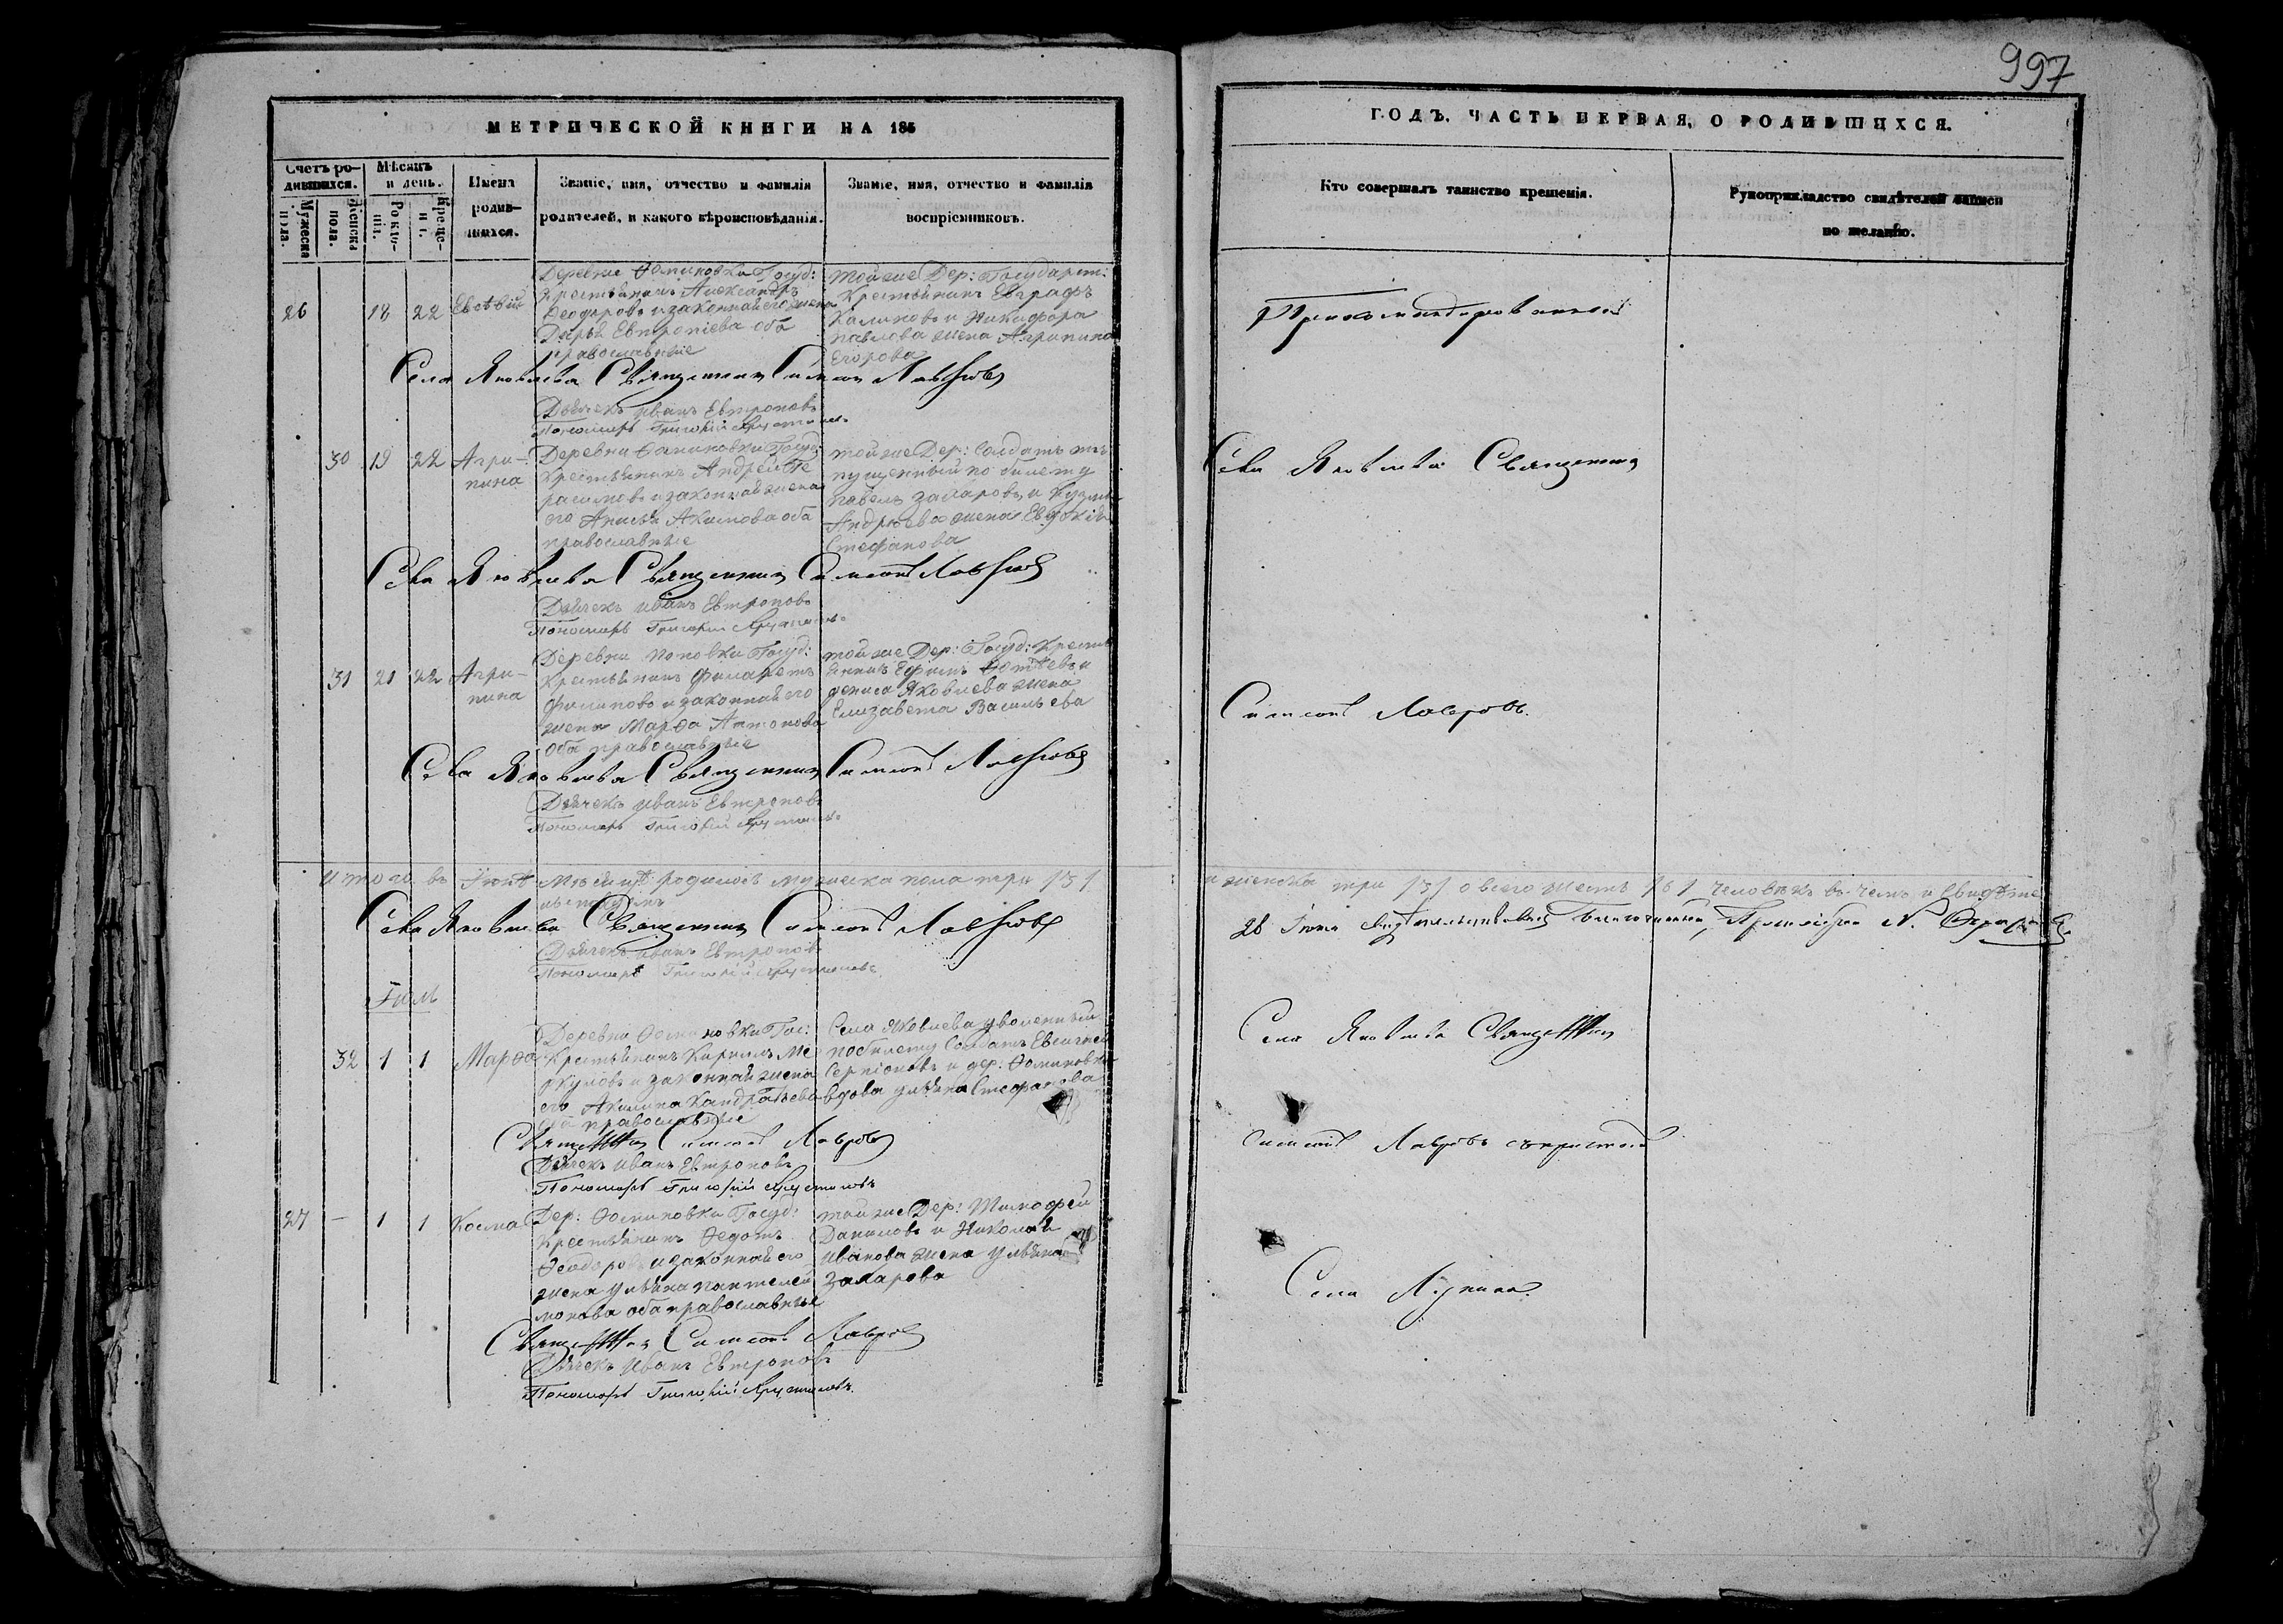 997
МЕТРИЧЕСКОЙ КНИГИ НА 185
Счетъ ро-
дившихся.
Мужеска
пола.
Женска
пола.
Мѣсяцъ
и день.
Рожде-
нія.
Креще-
нія.
Имена
родив-
шихся.
Званіе, имя, отчество и фамилія
родителей, и какого вѣроисповѣданія.
Званіе, имя, отчество и фамилія
воспріемниковъ.
26 18 22 Евсѣвій
Деревни Ѳоминовки Госуд:
Крестьянинъ Александръ
Феодоровъ и законная его жена
Дарья Евтропіева оба
православные
тойже Дер: Государст:
Крестьянинъ Евграфъ
Калиновъ и Никифора
павлова жена Агрипина
Егорова
Села Яковлева Священникъ Симеонъ Лавровъ
Дьячекъ иванъ Евтроповъ
Пономарь Григорій
30 19 22 Агри-
пина
Деревни Ѳоминовки Госуд:
Крестьянинъ Андрей Ге
расимовъ и законная жена
его Анисья Акимова оба
православные
тойже Дер: Солдатъ от
пущенный по билету
павелъ захаровъ и Кузмы
Андреева жена Евдокія
Стефанова
Села Яковлева Священникъ Симеонъ Лавровъ
Дьячекъ иванъ Евтроповъ
Пономарь Григорій
31 21 22 Агри-
пина
Деревни поповки Госуд:
Крестьянинъ Филаретъ
Филиповъ и законная его
жена Марѳа Антонова
оба православные
тойже Дер: Госуд: Кресть
янинъ Ефимъ Ѳотѣевъ и
дениса Яковлева жена
Елизавета Васильева
Села Яковлева Священникъ Симеонъ Лавровъ
Дьячекъ иванъ Евтроповъ
Пономарь Григорій
итого въ Іюнѣ Мѣсяцѣ родилось мужеска пола три /3/
Села Яковлева Священникъ Симеонъ Лавровъ
Дьячекъ иванъ Евтроповъ
Пономарь Григорій
Іюль
32 1 1 Марѳа
Деревни Ѳоминовки Гос:
Крестьянинъ Кирилъ Ме
ркуловъ и законная жена
его Акилина Кандратьева
оба православные
Села Яковлева уволенный
побилету Солдатъ Евсигней
Серпіоновъ и дер: Ѳоминовки
вдова ульяна Стефанова
Священникъ Симеонъ Лавровъ
Дьячекъ иванъ Евтроповъ
Пономарь Григорій
27 — 1 1 Косма
Дер: Ѳоминовки Госуд:
Крестьянинъ Ѳедотъ
Ѳеодоровъ и законная его
жена ульяна пантелей
монова оба православные
тойже Дер: Тимофей
Даниловъ и Николая
иванова жена ульяна
Захарова
Священникъ Симеонъ Лавровъ
Дьячекъ иванъ Евтроповъ
Пономарь Григорій
ГОДЪ. ЧАСТЬ ПЕРВАЯ, О РОДИВШИХСЯ.
Кто совершалъ таинство крещенія.
Рукоприкладство свидѣтелей записи
по желанію.
Прикомандированный
Села Яковлева Священникъ
Симеонъ Лавровъ.
и женска три /3/ а всего /6/ человѣкъ въ чемъ и свидѣте
28 Іюня свидѣтельствовалъ Благочинный,
Села Яковлева Священникъ
Симеонъ Лавровъ съ причтомъ
Села